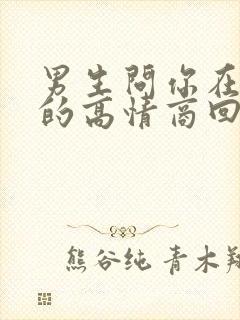 男生問你在
的高情商回
熊谷纯 青木翔